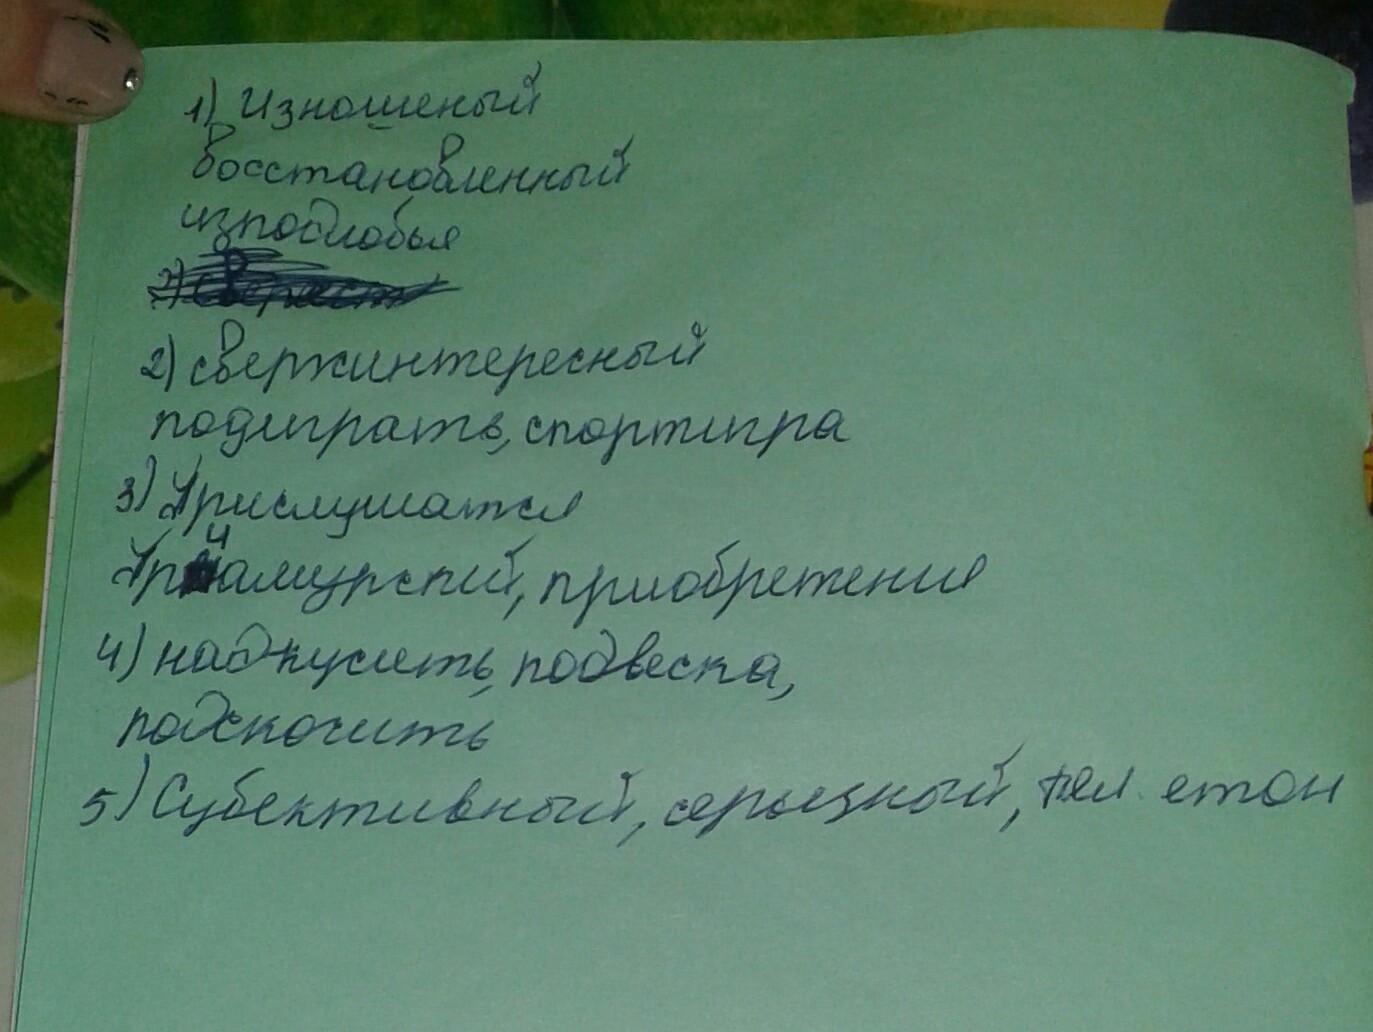 1) Изношеный
восстановленный
изподлобья
2) сверхинтересный
подиграть, спортигра
3) Прислушатся
Приамурский, приобретения
4) надкусить, подвеска,
подскочить
5) Субективный, серьезный,